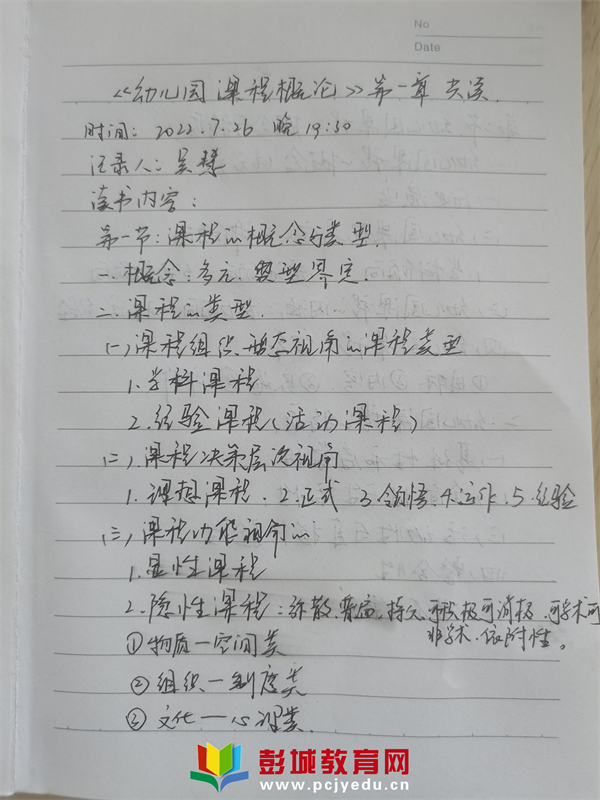 No
Date
《幼儿园课程概论》第一章 共读.
时间: 2022.7.26 晚 19:30
记录人: 吴
读书内容:
第一节: 课程的概念与类型.
一. 概念: 多元. 典型界定.
二. 课程的类型.
(一) 课程组织形态视角的课程类型
1. 学科课程
2. 经验课程(活动课程)
(二). 课程决策层次视角
1. 理想课程. 2. 正式 3. 领悟. 4. 运作. 5. 经验
(三) 课程功能视角的
1. 显性课程
2. 隐性课程: 弥散. 普遍. 持久. 可积极可消极. 可学术可
非学术. 依附性。
① 物质—空间类
② 组织—制度类
③ 文化—心理类.
彭城教育网
www.pcjyedu.cn